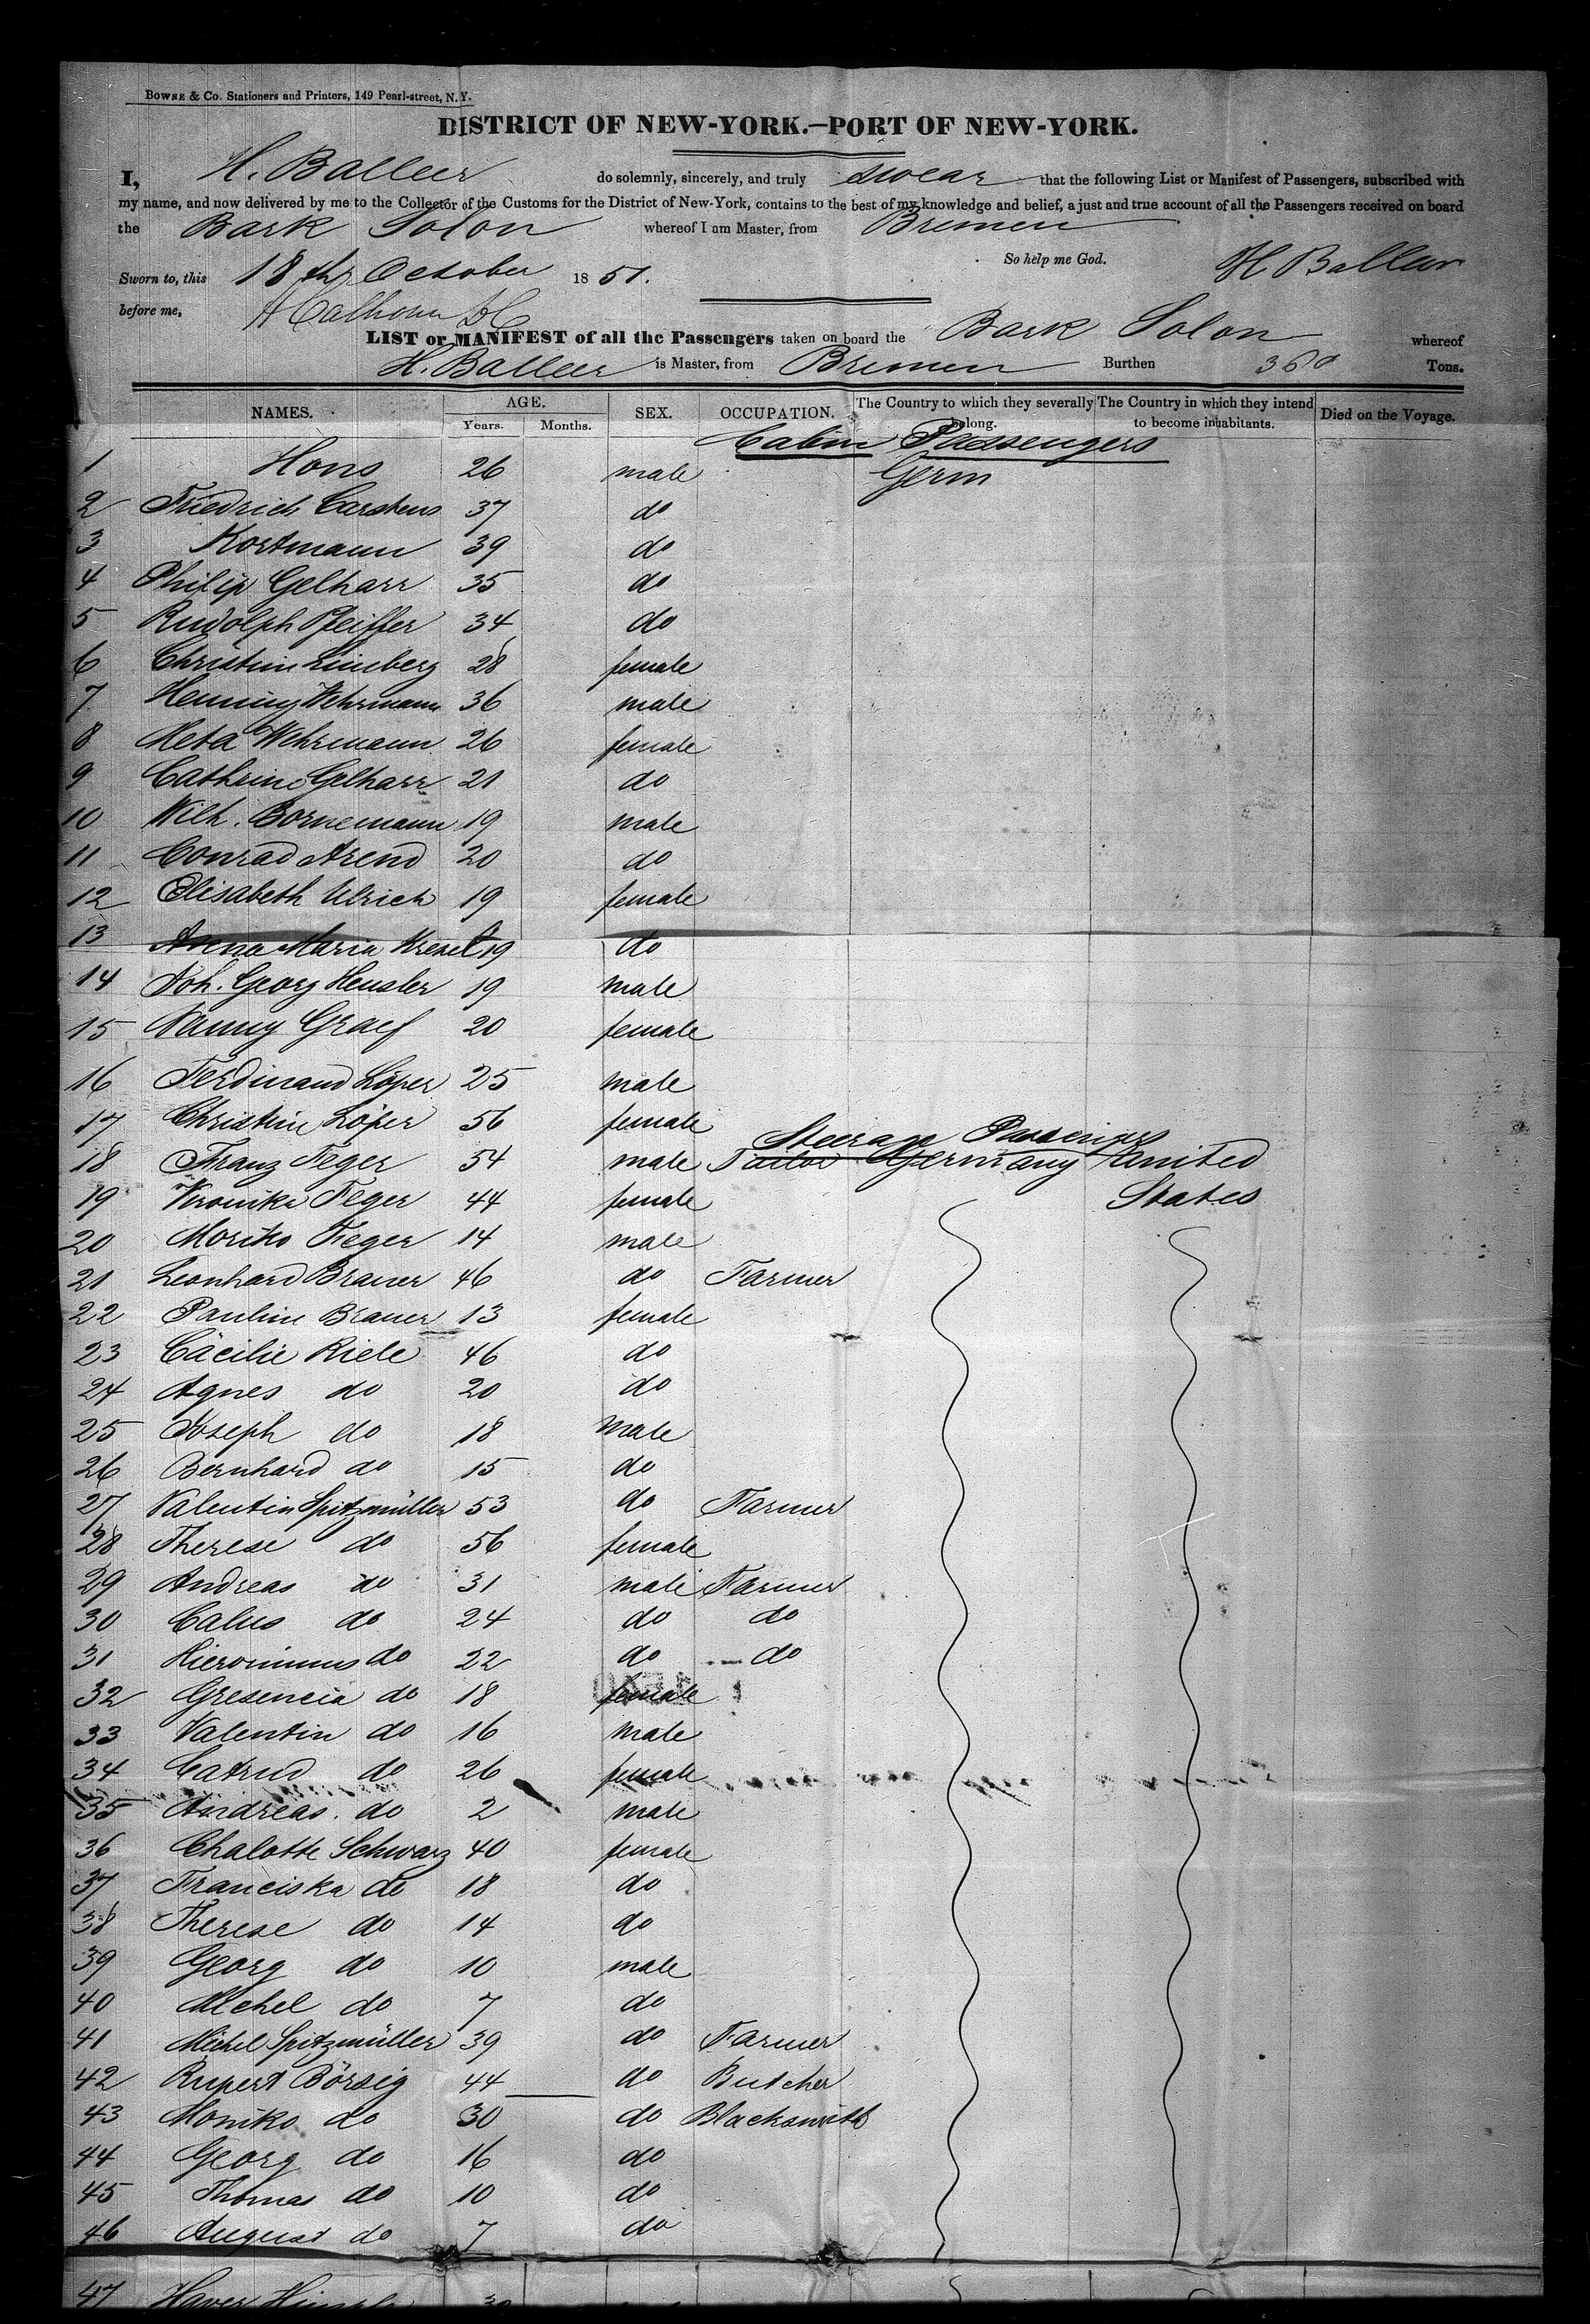 BOWNE & Co. Stationers and Printers, 149 Pearl-street, N. Y.
DISTRICT OF NEW-YORK.—PORT OF NEW-YORK.
I, H. Balleer do solemnly, sincerely, and truly swear that the following List or Manifest of Passengers, subscribed with
my name, and now delivered by me to the Collector of the Customs for the District of New-York, contains to the best of my knowledge and belief, a just and true account of all the Passengers received on board
the Bark Solon whereof I am Master, from Bremen
So help me God. H Balleer
Sworn to, this 18th October 1851.
before me, A Calhoun DC
LIST or MANIFEST of all the Passengers taken on board the Bark Solon whereof
H. Balleer is Master, from Bremen Burthen 360 Tons.
NAMES. AGE. Years. Months. SEX. OCCUPATION. The Country to which they severally belong. The Country in which they intend to become inhabitants. Died on the Voyage.
Cabin Passengers
1 Hons 26 male Germ
2 Friedrich Carstens 37 do
3 Kortmann 39 do
4 Philip Gelharr 35 do
5 Rudolph Pfeiffer 34 do
6 Christin 28 female
7 Henning Wehrmann 36 male
8 Meta Wehrmann 26 female
9 Cathrine Gelharr 21 do
10 Wilh. Bornemann 19 male
11 Conrad Arend 20 do
12 Elisabeth Ulrich 19 female
13 Anna Maria 19 do
14 Joh. Georg Hensler 19 male
15 Nanny Graef 20 female
16 Ferdinand Löper 25 male
17 Christine Löper 56 female
Steerage Passengers
18 Franz Feger 54 male Tailor Germany United
19 Veronika Feger 44 female States
20 Moritz Feger 14 male
21 Leonhard Brauer 46 do Farmer
22 Pauline Brauer 13 female
23 Cäcilie Riele 46 do
24 Agnes do 20 do
25 Joseph do 18 male
26 Bernhard do 15 do
27 Valentin Spitzmüller 53 do Farmer
28 Therese do 56 female
29 Andreas do 31 male Farmer
30 do 24 do do
31 Hieronimus do 22 do do
32 Gresencia do 18 female
33 Valentin do 16 male
34 do 26 female
35 Andreas. do 2 male
36 Chalotte Schwarz 40 female
37 Franciska do 18 do
38 Therese do 14 do
39 Georg do 10 male
40 Michel do 7 do
41 Michel Spitzmüller 39 do Farmer
42 Rupert Börsig 44 do Butcher
43 Moniko do 30 do Blacksmith
44 Georg do 16 do
45 Thomas do 10 do
46 August do 7 do
47